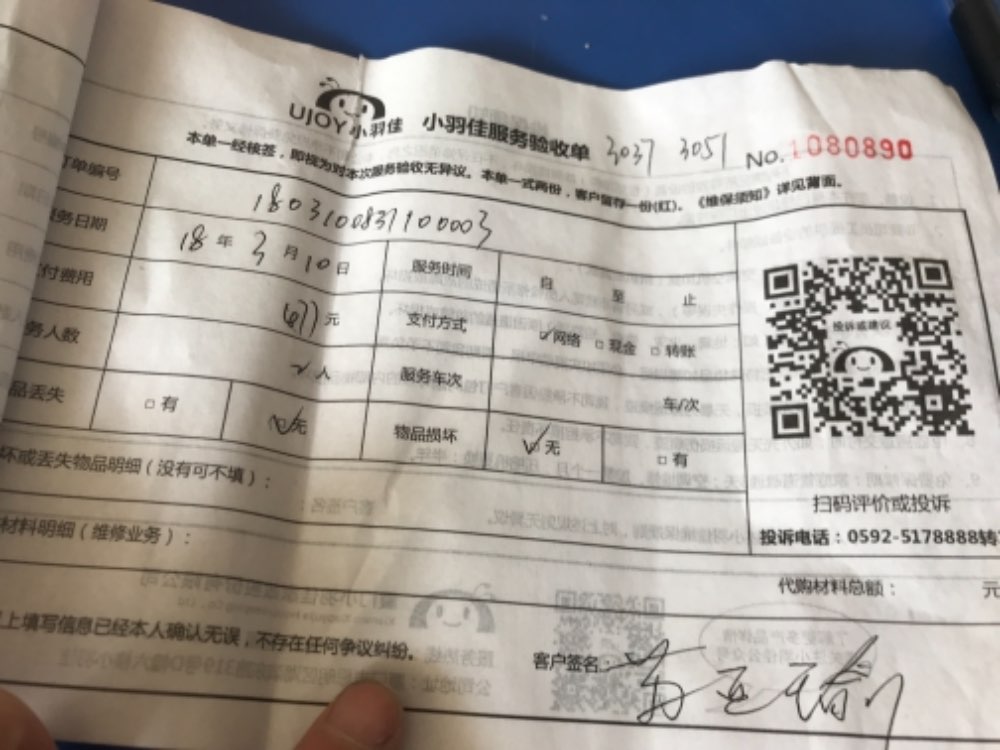 UJOY小羽佳 小羽佳服务验收单 3037 3051 No.1080890
本单一经核签，即视为对本次服务验收无异议。本单一式两份，客户留存一份(红)。《维保须知》详见背面。
订单编号 1803100837100003
服务日期 18年3月10日 服务时间 自 至 止
付费用 元 支付方式 ☑网络 □现金 □转账
务人数 人 服务车次 车/次
品丢失 □有 ☑无 物品损坏 ☑无 □有
坏或丢失物品明细（没有可不填）：
材料明细（维修业务）：
代购材料总额： 元
上填写信息已经本人确认无误，不存在任何争议纠纷。
客户签名：
投诉或建议
扫码评价或投诉
投诉电话：0592-5178888转